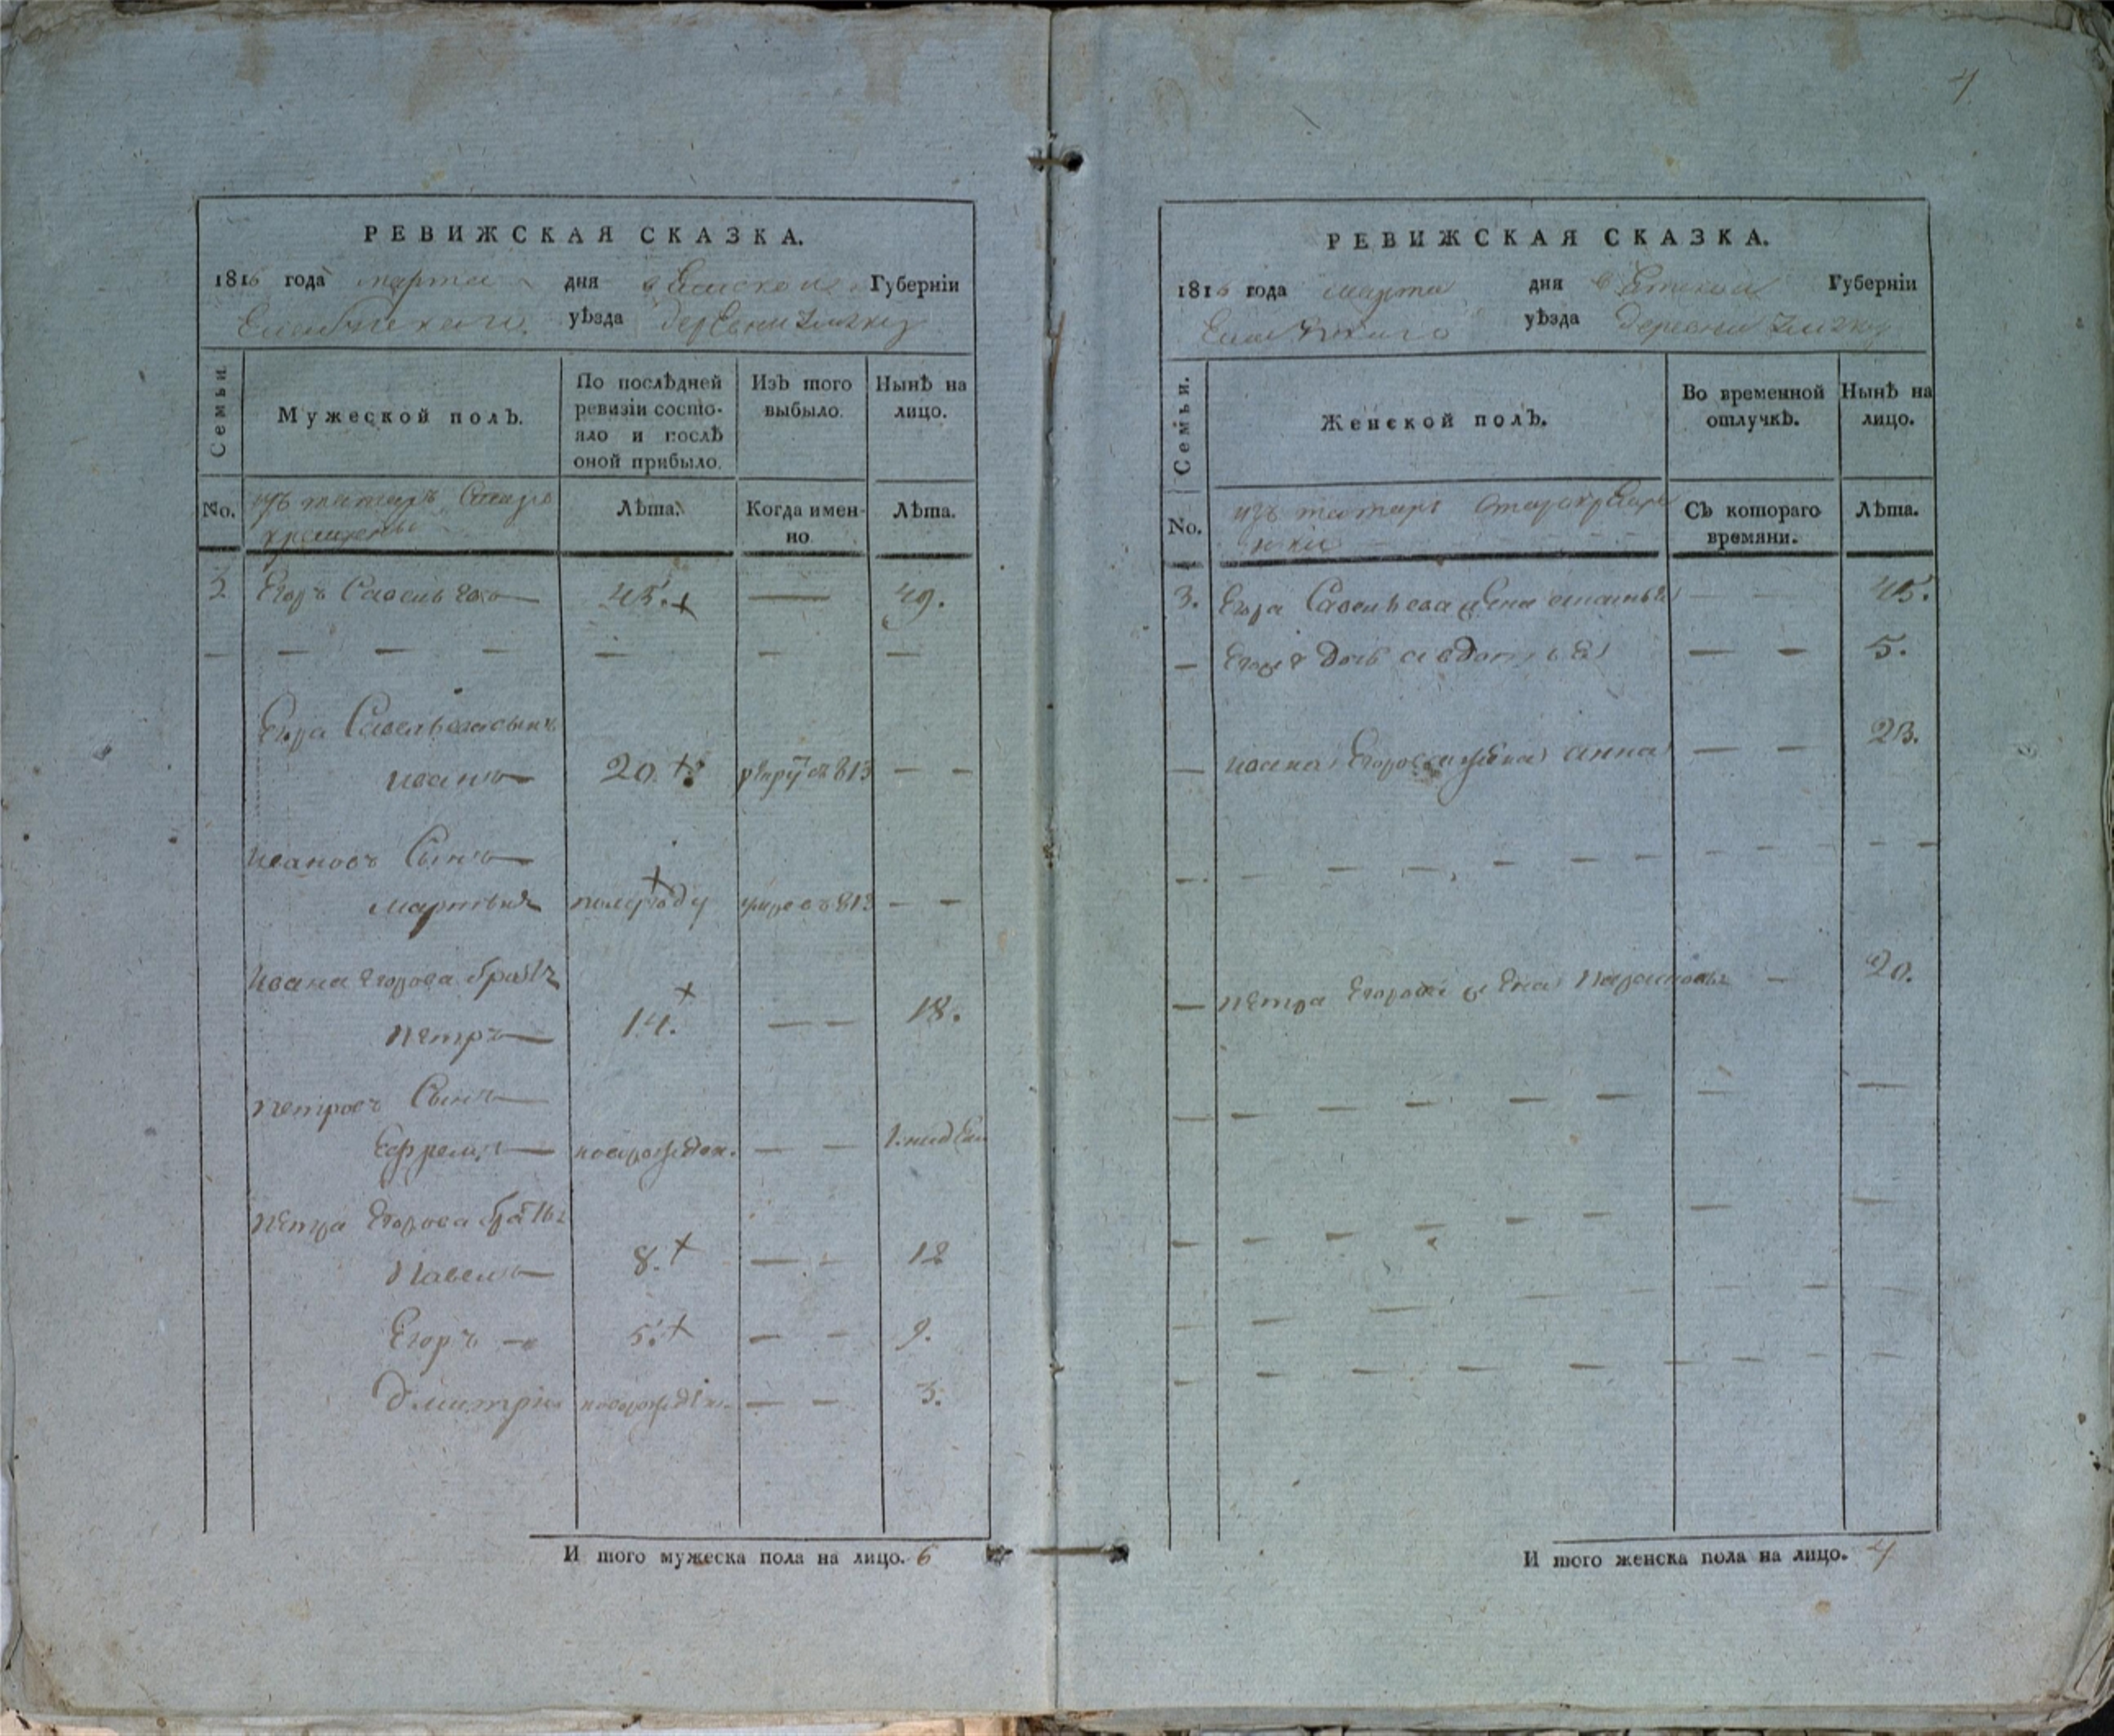 РЕВИЖСКАЯ СКАЗКА.
1816 года марта дня Вятской Губерніи
Елабужскаго уѣзда деревни
Семьи.
Мужеской полъ.
По послѣдней ревизіи состояло и послѣ оной прибыло.
Изъ того выбыло.
Нынѣ на лицо.
No.
изъ татаръ старо
крещены
Лѣта.
Когда именно
Лѣта.
3 Егоръ Савельевъ 45. 49.
Егора Савельева сынъ
Иванъ 20. рекру въ 813
Ивановъ Сынъ
Мартынъ полугоду умре въ 813
Ивана Егорова братъ
Петръ 14. 18.
Петровъ Сынъ
Ефремъ новорожден. 1. недел
Петра Егорова братья
Павелъ 8. 12
Егоръ 5. 9.
Дмитрий новорожден. 3.
И того мужеска пола на лицо. 6
4
РЕВИЖСКАЯ СКАЗКА.
1816 года марта дня Вятской Губерніи
Елабужскаго уѣзда деревни
Семьи.
Женской полъ.
Во временной отлучкѣ.
Нынѣ на лицо.
No.
изъ татаръ старокреще
Съ котораго времяни.
Лѣта.
3. Егора Савельева жена 45.
Егора дочь авдотья 5.
Ивана Егорова жена анна 23.
Петра Егорова жена 20.
И того женска пола на лицо. 4